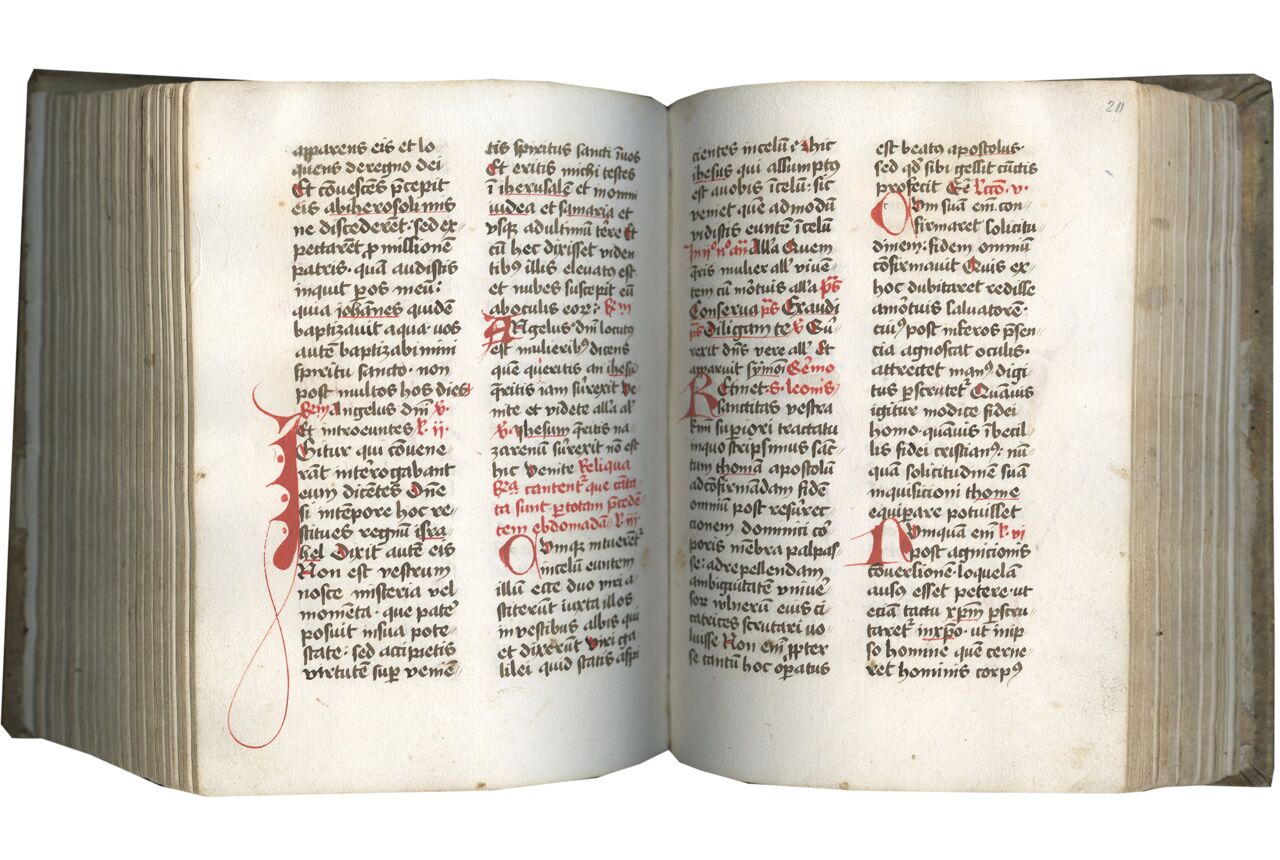 apparens eis et lo
quens de regno dei
Et cōvescēs p̄cepit
eis abiherosolimis
ne discederent · sed ex
pectarēt p̱missionē
patris · quā audistis
inquit p̱ os meū :
quia iohānes quidē
baptizavit aqua · uos
autē baptizabimini
spiritu sancto · non
post multos hos dies
Angelus dn̄i v̄ ·
Et introeuntes ℟ · ii ·
Igitur qui cōvene
rāt interrogabant
eum dicētes Dn̄e
si in tempore hoc re
stitues regnū isra
hel Dixit autē eis
Non est vestrum
nosce misteria vel
momēta · que pater
posuit in sua pote
state · sed accipietis
virtutē sup̱ veniē
tis spiritus sancti ī vos
Et eritis michi testes
ī iherusalē et in omni
iudea et samaria et
vsq̨ ad ultimū t're Et
cū hec dixisset viden
tibꝰ illis elevatꝰ est
et nubes suscepit eū
ab oculis eorꝝ ℟ iii
Angelus dn̄i locutꝰ
est mulieribꝰ dicens
quē queritis an ihesū
q̄ritis iam surrexit Ve
nite et videte all'a al'
v̄ · ihesum q̄ritis na
zarenū surrexit nō est
hic Venite Reliqua
℟a cantent' que cāta
ta sunt p̱ totam p̄cedē
tem ebdomadā · ℟ iii
Cvmq̨ intuerēt'
in celum euntem
illū ecce duo viri a
stiterūt iuxta illos
in vestibus albis qui
et dixerūt Viri ga
lilei quid statis aspi
211
cientes in celū : hic
ihesus qui assumptꝰ
est a uobis ī celū : sic
veniet quē ad modū
vidistis euntē ī celū
In iiº nº an̄ All'a Quem
q̄ris mulier all' viven
tem cū mortuis all'a p̄s
Conserva p̄s Exaudi
p̄s Diligam te v̄ Sur
rexit dn̄s vere all' Et
apparuit symoni Sermo
REtinet · s · leonis
sanctitas vestra
kmī superiori tractatu
in quo scripsimus sāc
tum thomā apostolū
ad cōfirmādam fidē
omniū post resurrec
cionem dominici cor
poris mēbra palpas
se : ad repellendam
ambiguitatē univer
sorꝝ vulnerū eius ci
catrices scrutari vo
luisse Non em̄ p̱pter
se tantū hoc op̱atus
est beatꝰ apostolus ·
sed qđ sibi gessit cūctis
profecit lc̄to · v ·
Cvm suā em̄ con
firmaret solicitu
dinem : fidem omniū
cōfirmavit Quis ex
hoc dubitaret redisse
a mortuis salvatorē ·
cuiꝰ post inferos p̄sen
cia agnoscat oculis ·
attrectet manꝰ digi
tus p̱scrutet' Quāvis
igitur modice fidei
homo · quāvis ībecil
lis fidei cristianꝰ : nū
quā solicitudinē suā
inquisitioni thome
equipare potuisset
NVmquā em̄ ℟ vi
post agnicionis
cōversionē · loquelā
ausꝰ esset petere · ut
eciā tactu xp̄m p̱scru
taret' in xp̄o · ut in ip
so homine quē cerne
ret hominis corpꝰ